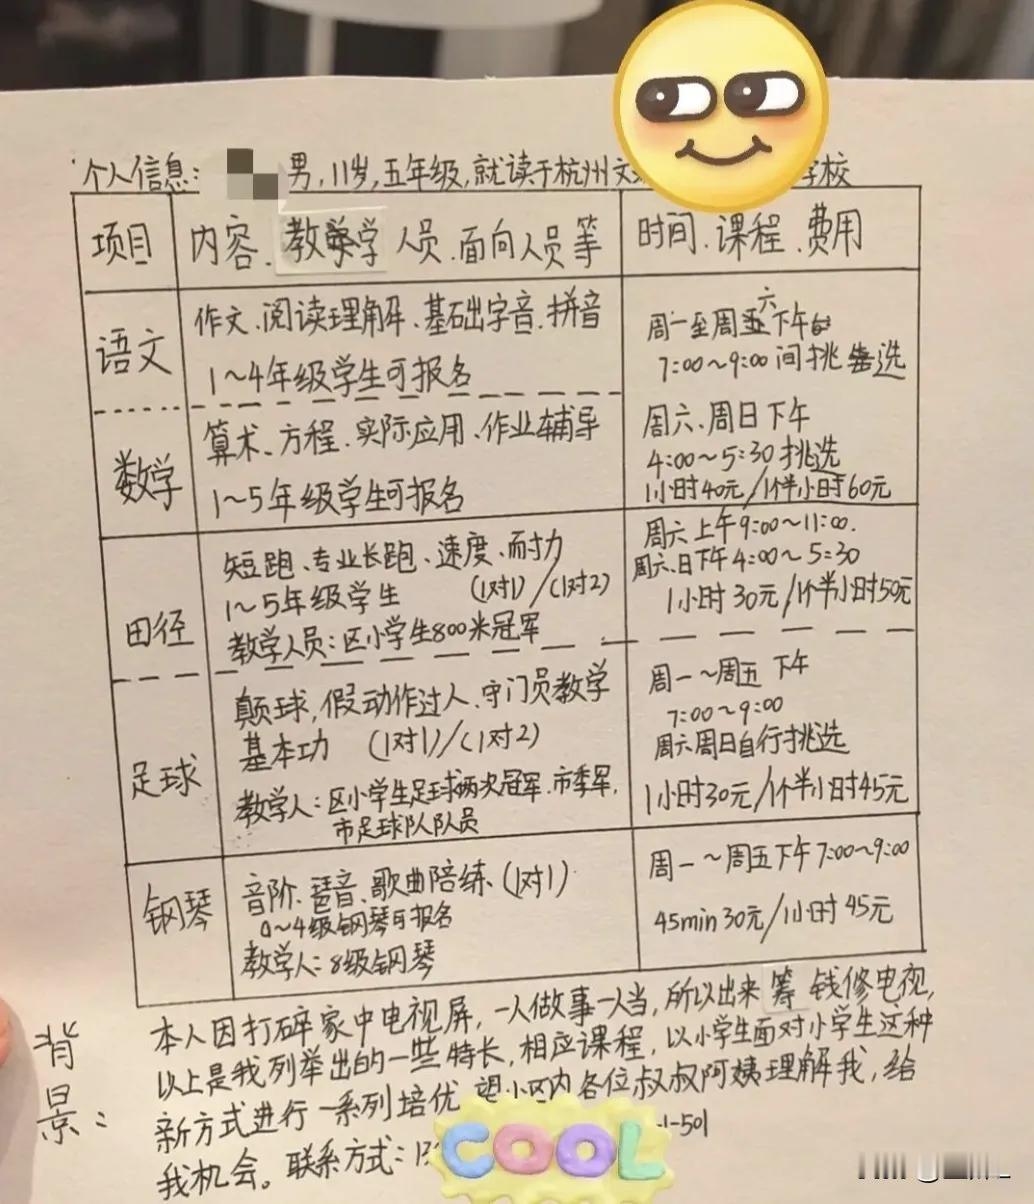 个人信息: 男,11岁,五年级,就读于杭州文 学校
项目 内容、教学人员、面向人员等 时间、课程、费用
语文
作文、阅读理解、基础字音、拼音
1~4年级学生可报名
周一至周六下午
7:00~9:00间挑选
数学
算术、方程、实际应用、作业辅导
1~5年级学生可报名
周六、周日下午
4:00~5:30挑选
1小时40元/1个半小时60元
田径
短跑、专业长跑、速度、耐力
1~5年级学生 (1对1)/(1对2)
教学人员:区小学生800米冠军
周六上午9:00~11:00.
周六、日下午4:00~5:30
1小时30元/1个半小时50元
足球
颠球,假动作过人、守门员教学
基本功 (1对1)/(1对2)
教学人:区小学生足球两次冠军、市季军,
市足球队队员
周一~周五下午
7:00~9:00
周六周日自行挑选
1小时30元/1个半小时45元
钢琴
音阶、琶音、歌曲陪练、(1对1)
0~4级钢琴可报名
教学人:8级钢琴
周一~周五下午7:00~9:00
45min30元/1小时45元
背景:
本人因打碎家中电视屏,一人做事一人当,所以出来筹钱修电视,
以上是我列举出的一些特长,相应课程,以小学生面对小学生这种
新方式进行一系列培优 望小区内各位叔叔阿姨理解我,给
我机会。联系方式:13 -1-501
COOL